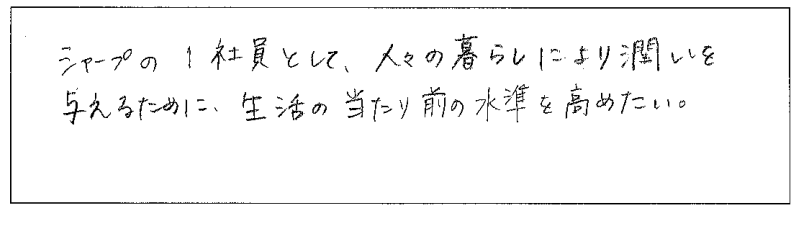 シャープの1社員として、人々の暮らしにより潤いを
与えるために、生活の当たり前の水準を高めたい。